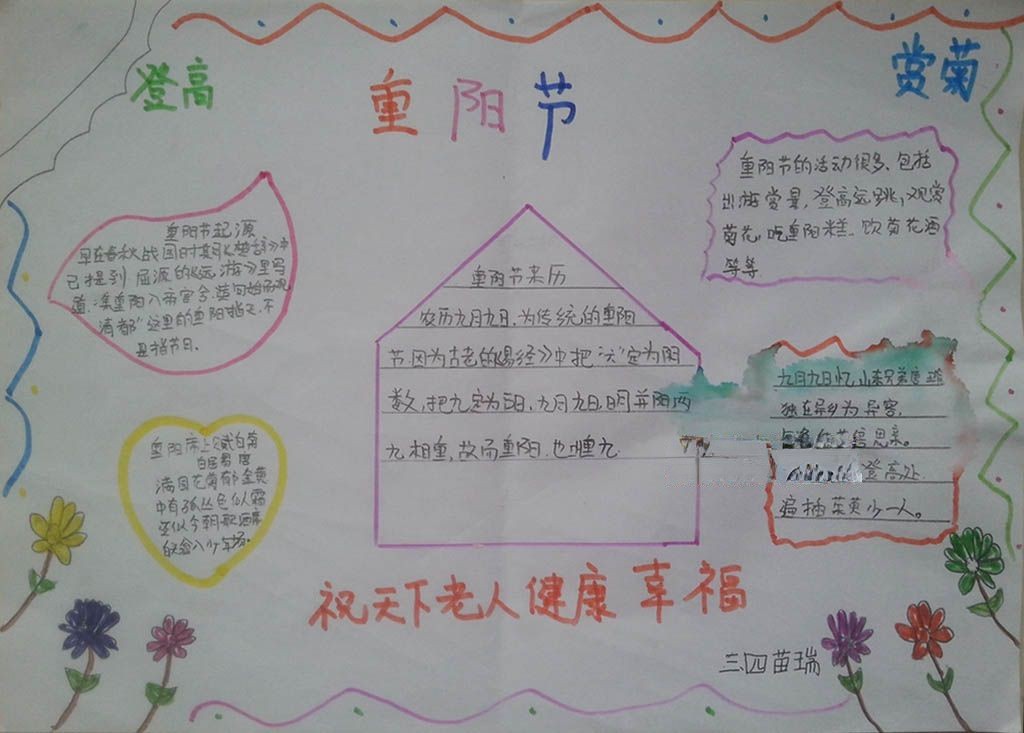 登高
重阳节
赏菊
重阳节的活动很多、包括
出游赏景,登高远眺,观赏
菊花,吃重阳糕、饮菊花酒
等等.
重阳节起源
早在春秋战国时期《楚辞》中
已提到屈原的《远游》里写
道:集重阳入帝宫兮,造旬始而观
清都"这里的重阳指天,不
是指节日.
重阳节来历
农历九月九日.为传统的重阳
节因为古老的《易经》中把"六"定为阴
数,把九定为阳,九月九日,日月并阳两
九相重,故而重阳.也
九月九日忆山东兄弟
独在异乡为异客,
思亲。
登高处
遍插茱萸少一人。
重阳席上赋白菊
白居易 唐
满园花菊郁金黄
中有孤丛色似霜
还似今朝歌酒席
白头翁入少年场.
祝天下老人健康幸福
三四苗瑞